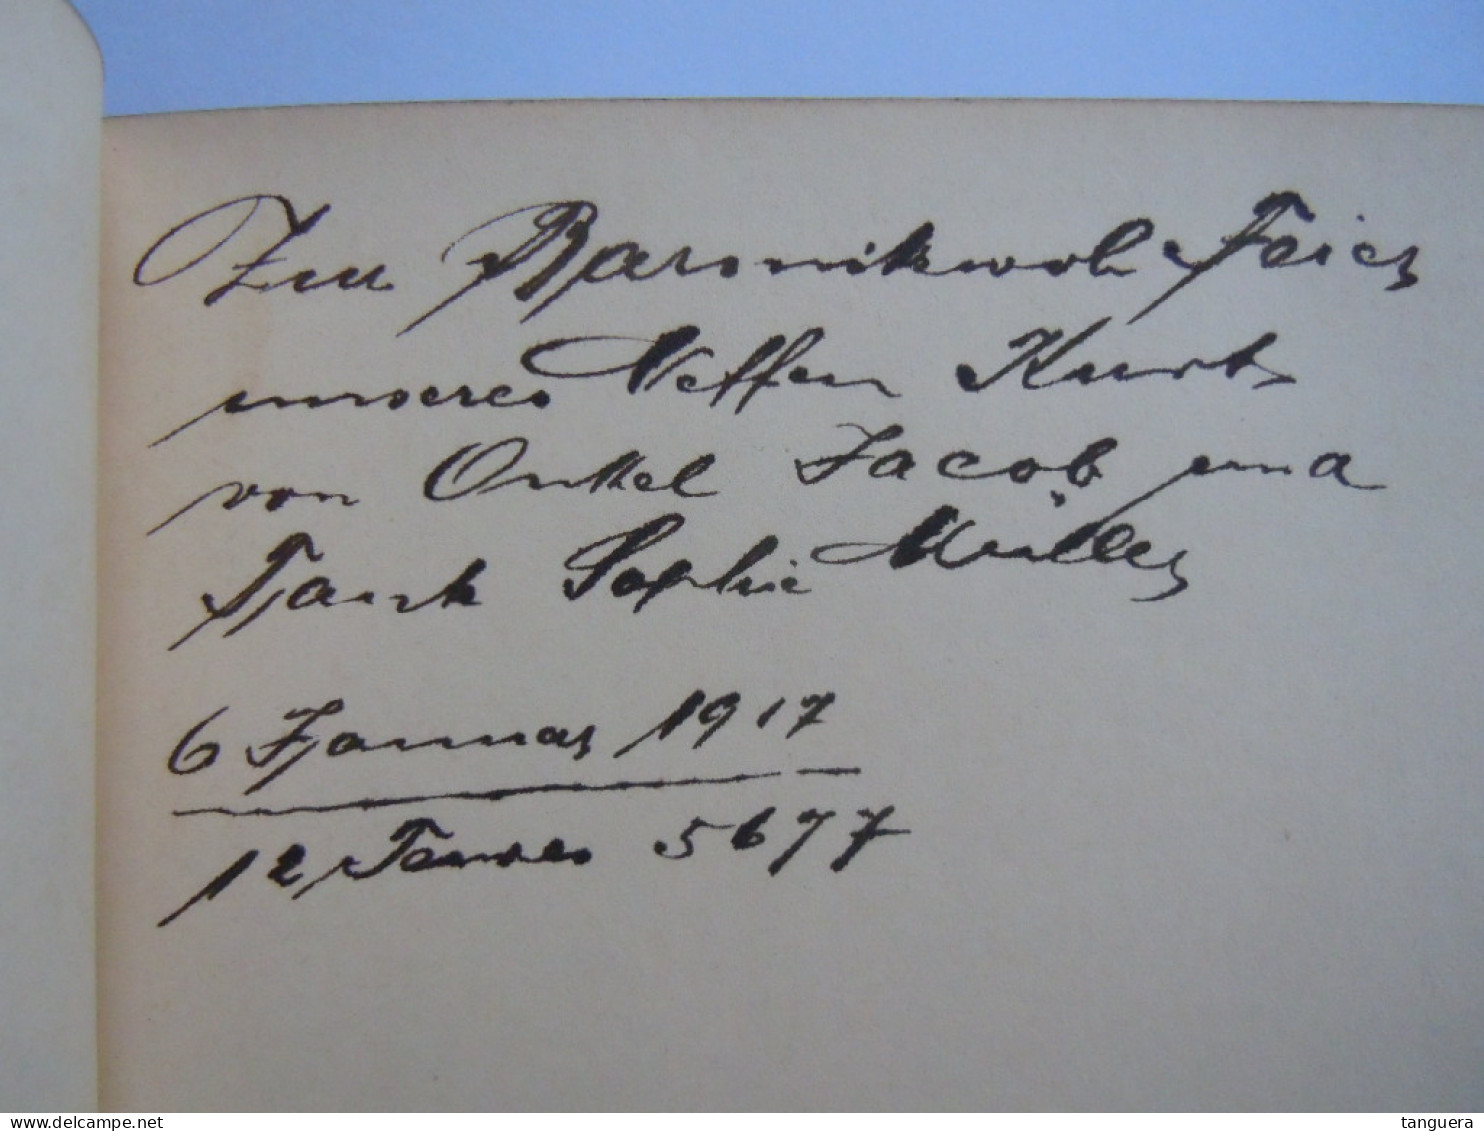 Zur Barmikwoh Feier
unseres Neffen Kurt
von Onkel Jacob und
Tante Sophie Müller
6 Januar 1917
12 Tewes 5677
www.delcampe.net
tanguera